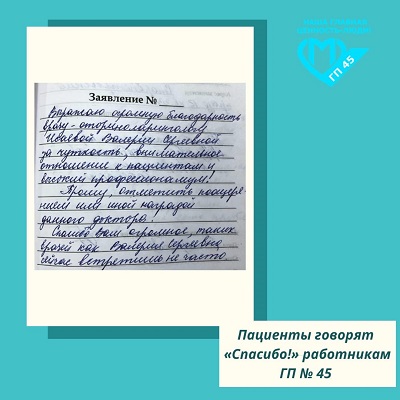 ГП 45
Заявление №
Выражаю огромную благодарность
врачу-оториноларингологу
Валерии Сергеевной
за чуткость, внимательное
отношение к пациентам и
высокий профессионализм!
Прошу, отметить поощре-
нием или иной наградой
данного доктора.
Спасибо Вам огромное, таких
врачей как Валерия Сергеевна
сейчас встретишь не часто.
Пациенты говорят
«Спасибо!» работникам
ГП № 45